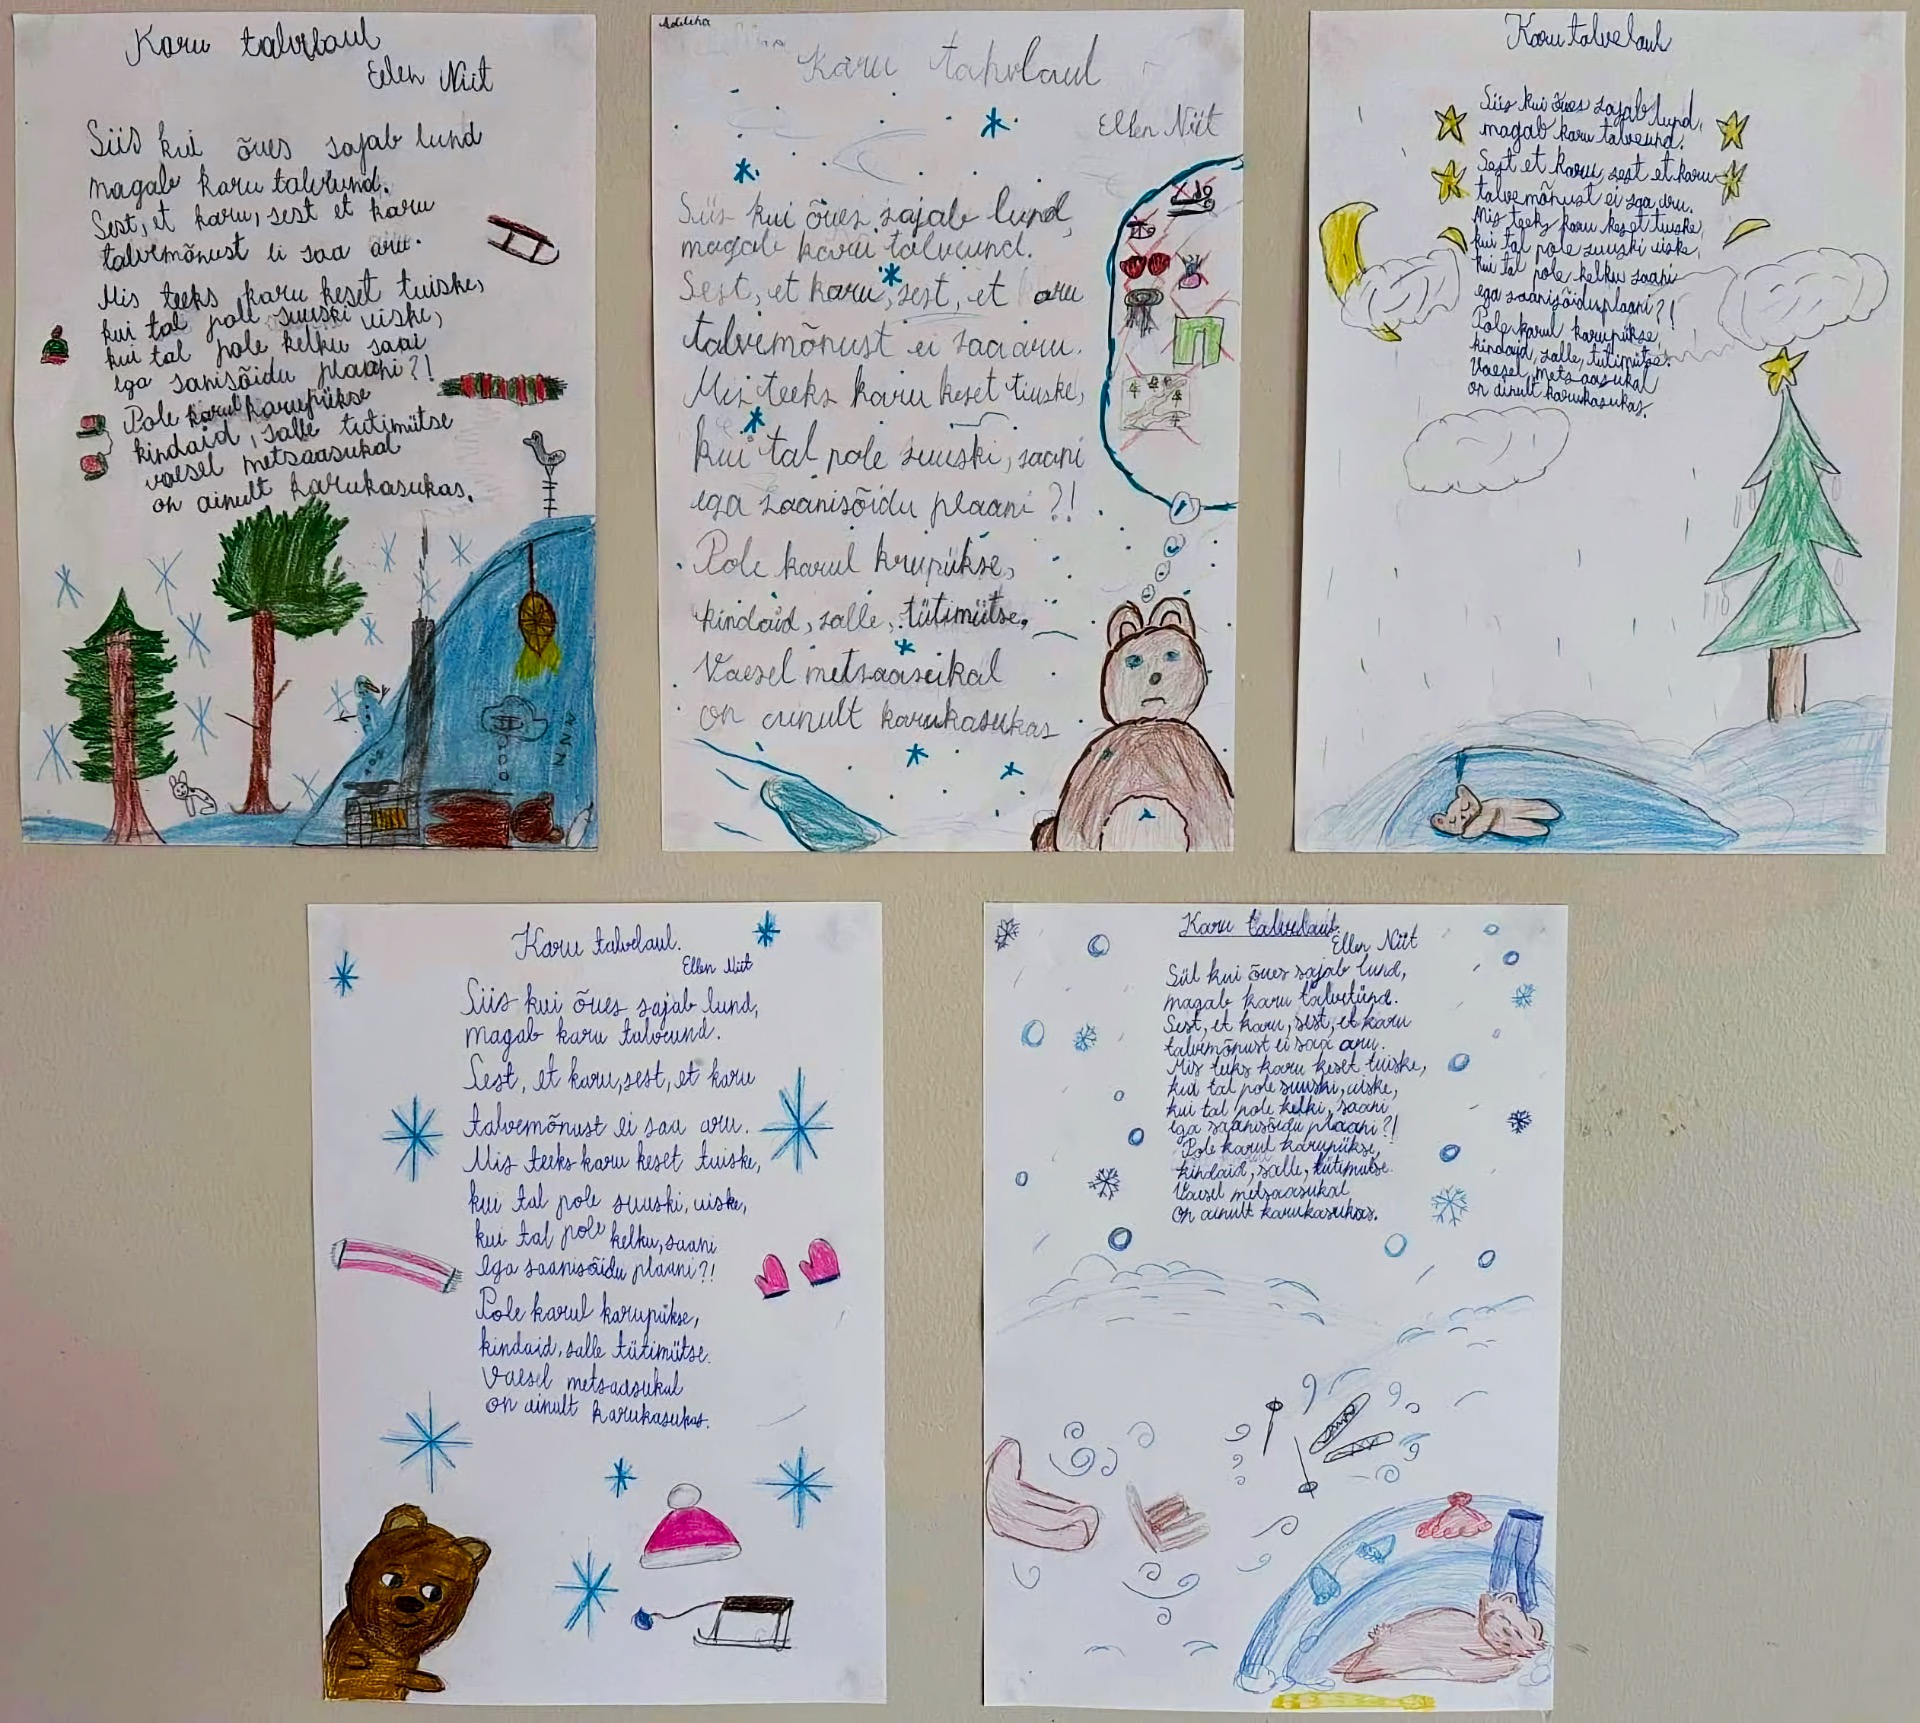 Karu talvelaul
Ellen Niit
Siis kui õues sajab lund
magab karu talveund.
Sest, et karu, sest et karu
talvemõnust ei saa aru.
Mis teeks karu keset tuiske,
kui tal pole suuski uiske,
kui tal pole kelku saai
ega sanisõidu plaani?!
Pole karul karupükse
kindaid, salle tutimütse
vaesel metsaasukal
on ainult karukasukas.
Adeliha
Karu talvelaul
Ellen Niit
Siis kui õues sajab lund,
magab karu talveund.
Sest, et karu, sest, et aru
talvemõnust ei saa aru.
Mis teeks karu keset tuiske,
kui tal pole suuski, saani
ega saanisõidu plaani?!
Pole karul krupükse,
kindaid, salle, tütimütse.
Vaesel metsaaseikal
on ainult karukasukas
Karu talvelaul
Siis kui õues sajab lund,
magab karu talveund.
Sest et karu, sest et karu
talvemõnust ei saa aru.
Mis teeks karu keset tuiske,
kui tal pole suuski uiske,
kui tal pole kelku saani
ega saanisõiduplaani?!
Pole karul karupükse,
kindaid, salle, tutimütse.
Vaesel metsaasukal
on ainult karukasukas.
Karu talvelaul.
Ellen Niit
Siis kui õues sajab lund,
magab karu talveund.
Sest, et karu, sest, et karu
talvemõnust ei saa aru.
Mis teeks karu keset tuiske,
kui tal pole suuski, uiske,
kui tal pole kelku, saani
ega saanisõidu plaani?!
Pole karul karupükse,
kindaid, salle tütimütse.
Vaesel metsaasukal
on ainult karukasukas.
Karu talvelaul.
Ellen Niit
Siil kui õues sajab lund,
magab karu talveünd.
Sest, et karu, sest, et karu
talvemõnust ei saa aru.
Mis teeks karu keset tuiske,
kui tal pole suuski, uiske,
kui tal pole kelki, saani
ega saanisõidu plaani?!
Pole karul karupükse,
kindaid, salle, tütimütse.
Vaesel metsaasukal
on ainult karukasukas.